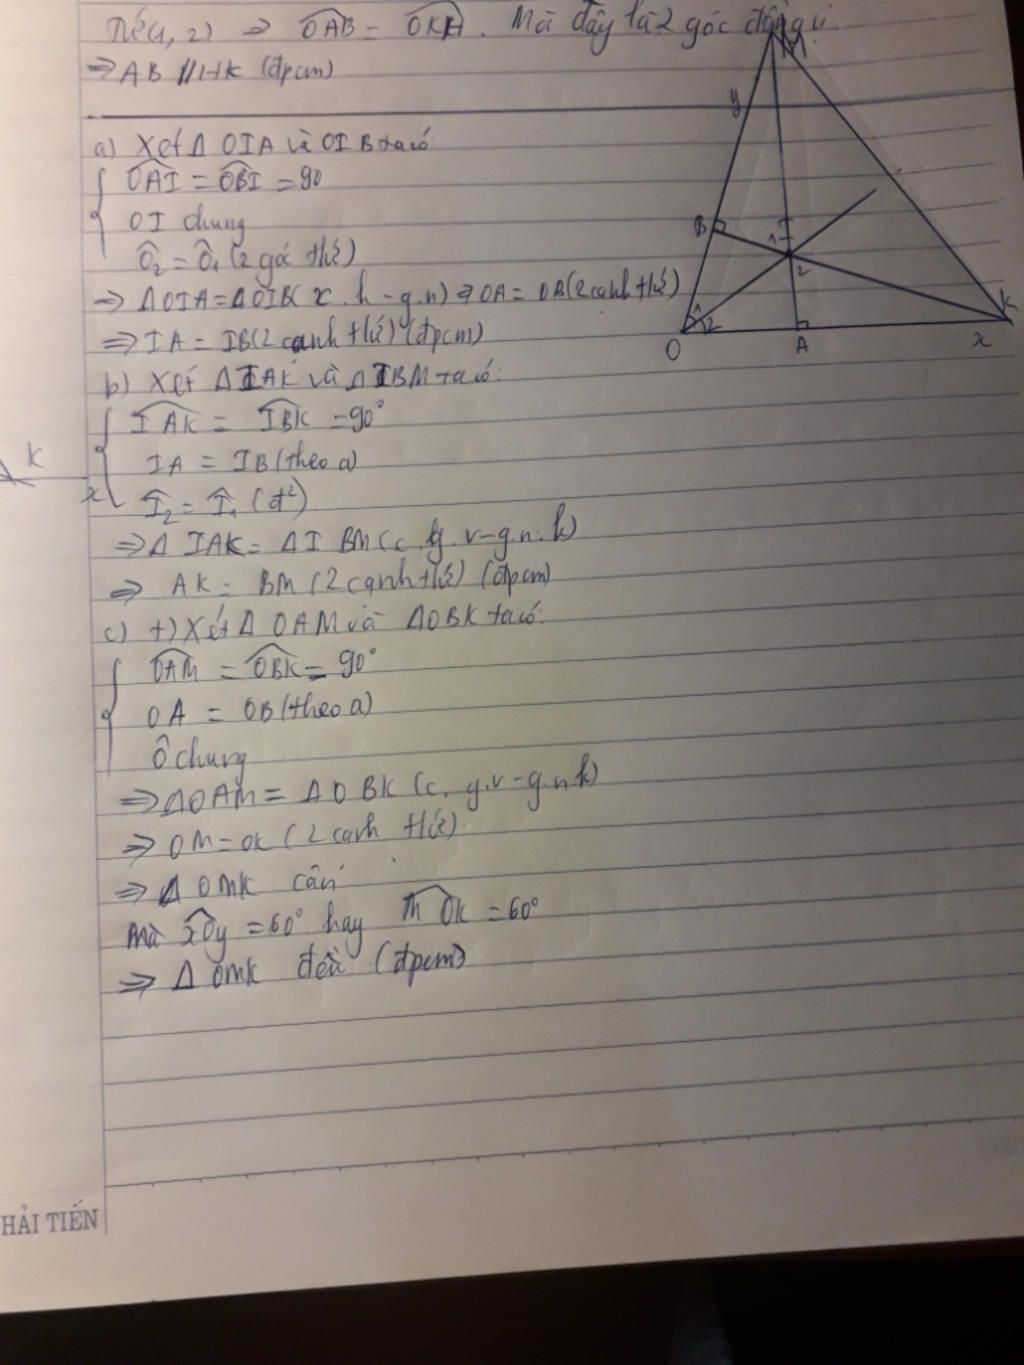 Từ (1, 2) ⇒ OAB = OKH. Mà đây là 2 góc đồng vị
⇒ AB // HK (đpcm)
a) Xét Δ OIA và OIB ta có:
OAI = OBI = 90
OI chung
Ô2 = Ô1 (2 góc t/ứ)
⇒ ΔOIA = ΔOIB( . h - g.n) ⇒ OA = OB (2 cạnh t/ứ)
⇒ IA = IB (2 cạnh t/ứ) (đpcm)
b) Xét ΔIAK và ΔIBM ta có:
IAK = IBK = 90°
IA = IB (theo a)
Î2 = Î1 (đ²)
⇒ Δ IAK = Δ I BM (c.g.v - g.n.k)
⇒ AK = BM (2 cạnh t/ứ) (đpcm)
c) +) Xét Δ OAM và ΔOBK ta có:
OAM = OBK = 90°
OA = OB (theo a)
Ô chung
⇒ ΔOAM = ΔOBK (c. g.v - g.n.k)
⇒ OM = OK (2 cạnh t/ứ)
⇒ Δ OMK cân
Mà xOy = 60° hay MOK = 60°
⇒ Δ OMK đều (đpcm)
M
y
B
1
2
1
2
O
A
x
K
K
x
HẢI TIẾN